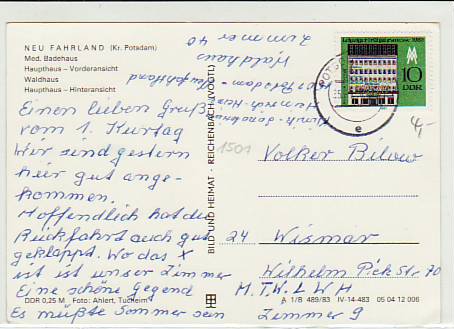 NEU FAHRLAND (Kr. Potsdam)
Med. Badehaus
Haupthaus – Vorderansicht
Waldhaus
Haupthaus – Hinteransicht
Einen lieben Gruß
vom 1. Kurtag
Wir sind gestern
hier gut ange-
kommen.
Hoffendlich hat die
Rückfahrt auch gut
geklappt. Wo das X
ist ist unser Zimmer
Eine schöne Gegend
Es müßte Sommer sein
DDR 0,25 M Foto: Ahlert, Tucheim
BILD UND HEIMAT · REICHENBACH (VOGTL)
1501
Zimmer 40
Waldhaus
Neufahrland
Potsdam -
Heinrich-Heine
Klinik-Sanatorium
Leipziger Frühjahrsmesse 1983
10
DDR
e
4,-
Volker Bilow
24 Wismar
Wilhelm Pick Str. 70
M.T.W.L.W.H
Zimmer 9
A 1/B 489/83 IV-14-483 05 04 12 006